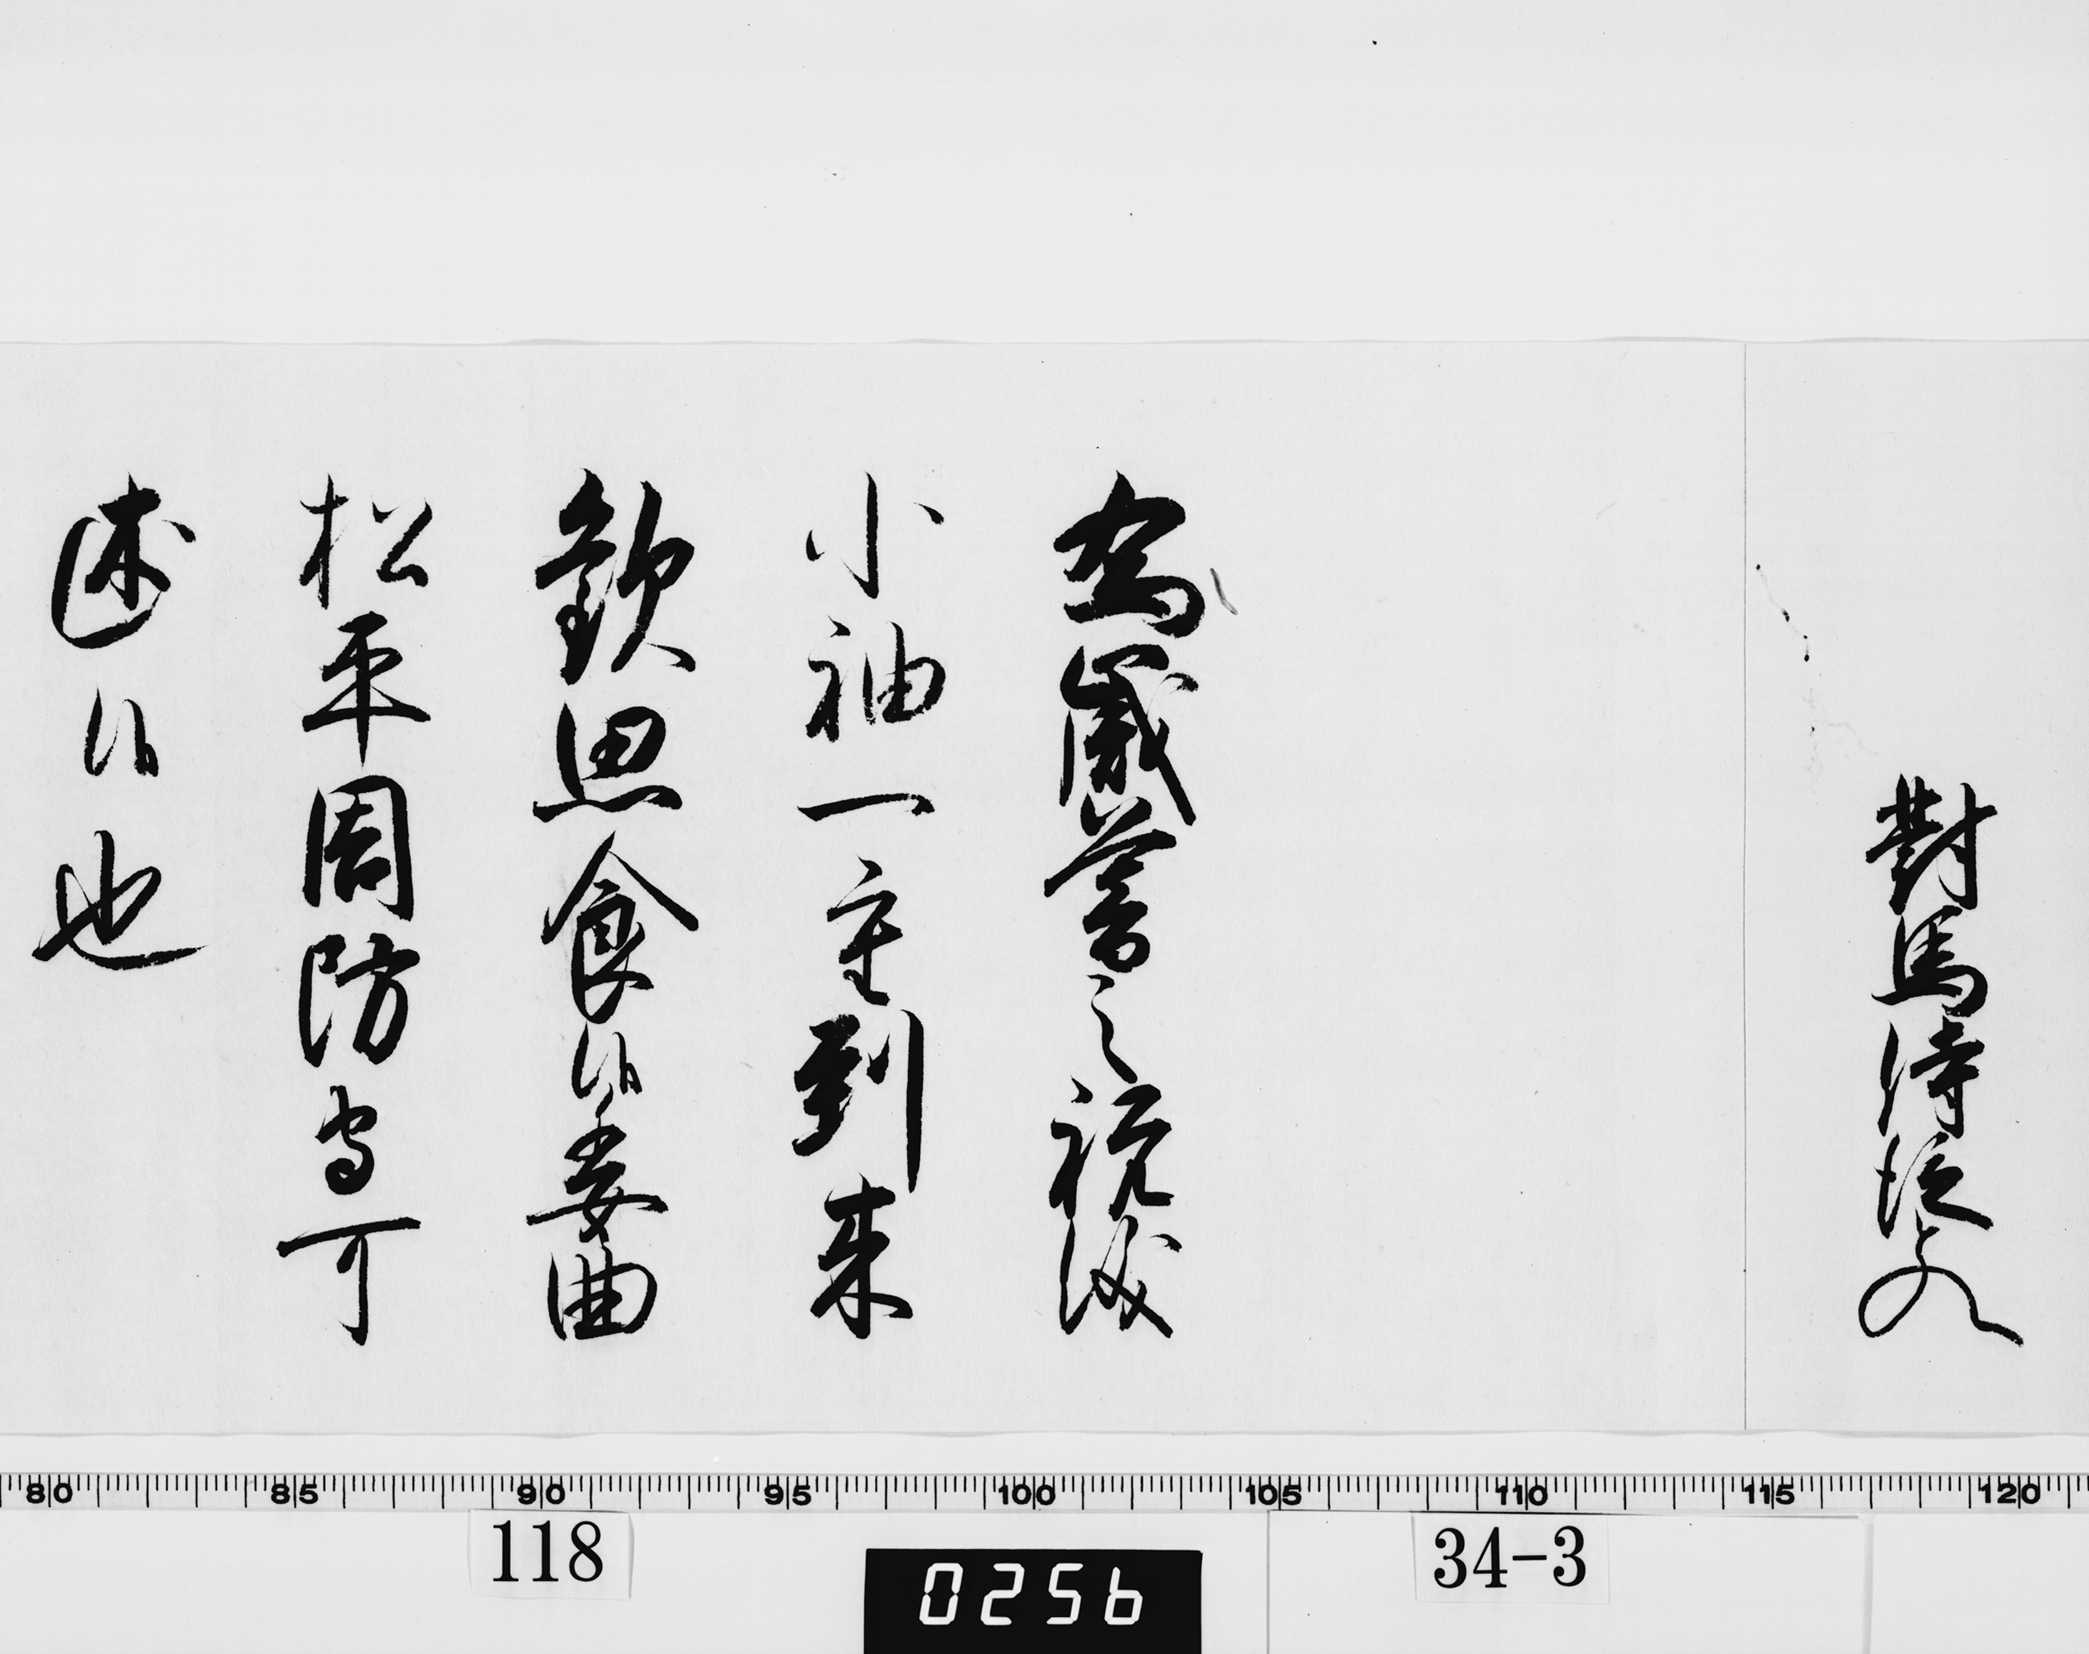 對馬侍従とのへ
為歳暮之祝儀
小袖一重到来
歓思食候委曲
松平周防守可
述候也
80 85 90 95 100 105 110 115 120
118
34-3
0256